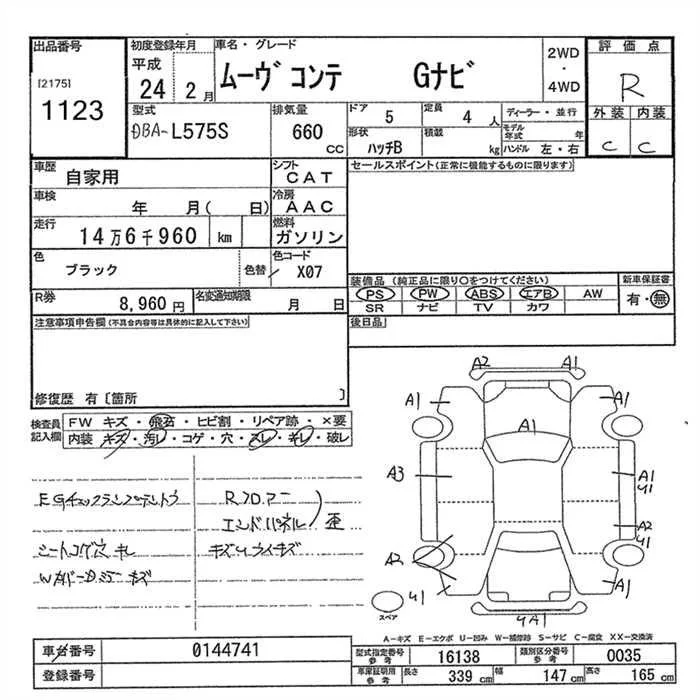 出品番号
[2175]
1123
初度登録年月
平成
24 2 月
車名・グレード
ムーヴ コンテ Gナビ
2WD
・
4WD
評価点
R
外装 内装
C C
型式
DBA-L575S
排気量
660
CC
ドア 5
定員 4 人
ディーラー・並行
形状 ハッチB
積載 kg
モデル年式 年
ハンドル 左・右
車歴 自家用
シフト CAT
セールスポイント(正常に機能するものに限ります)
車検 年 月( 日)
冷房 AAC
走行 14万6千960 km
燃料 ガソリン
色 ブラック
色替
色コード X07
装備品(純正品に限り○をつけてください)
新車保証書
PS PW ABS エアB AW
SR ナビ TV カワ
有・無
R券 8,960 円
名変通知期限 月 日
後日品
注意事項申告欄(不具合内容等は具体的に記入して下さい)
修復歴 有〔箇所 〕
検査員
記入欄
FW キズ・飛石・ヒビ割・リペア跡・×要
内装 キズ・汚レ・コゲ・穴・スレ・キレ・破レ
EGチェックランプテントウ
シートコゲ穴 キレ
Rフロアー
エンドパネル 歪
A2 A1
A1 A1
A1
A3
A1
U1
A2
U1
A2
U1
A1
UA1
スペア
A-キズ E-エクボ U-凹み W-補修跡 S-サビ C-腐食 XX-交換済
車台番号 0144741
登録番号
型式指定番号
参考
16138
類別区分番号
参考
0035
車庫証明用
参考
長さ 339 cm
幅 147 cm
高さ 165 cm